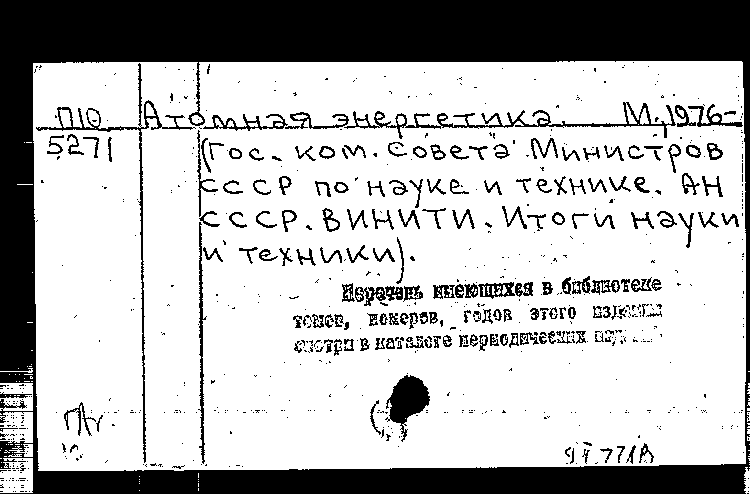 П10 Атомная энергетика. М., 1976-
5271 (Гос. ком. Совета Министров
СССР по науке и технике. АН
СССР. ВИНИТИ. Итоги науки
и техники).
Перечень имеющихся в библиотеке
томов, номеров, годов этого издания
смотри в каталоге периодических